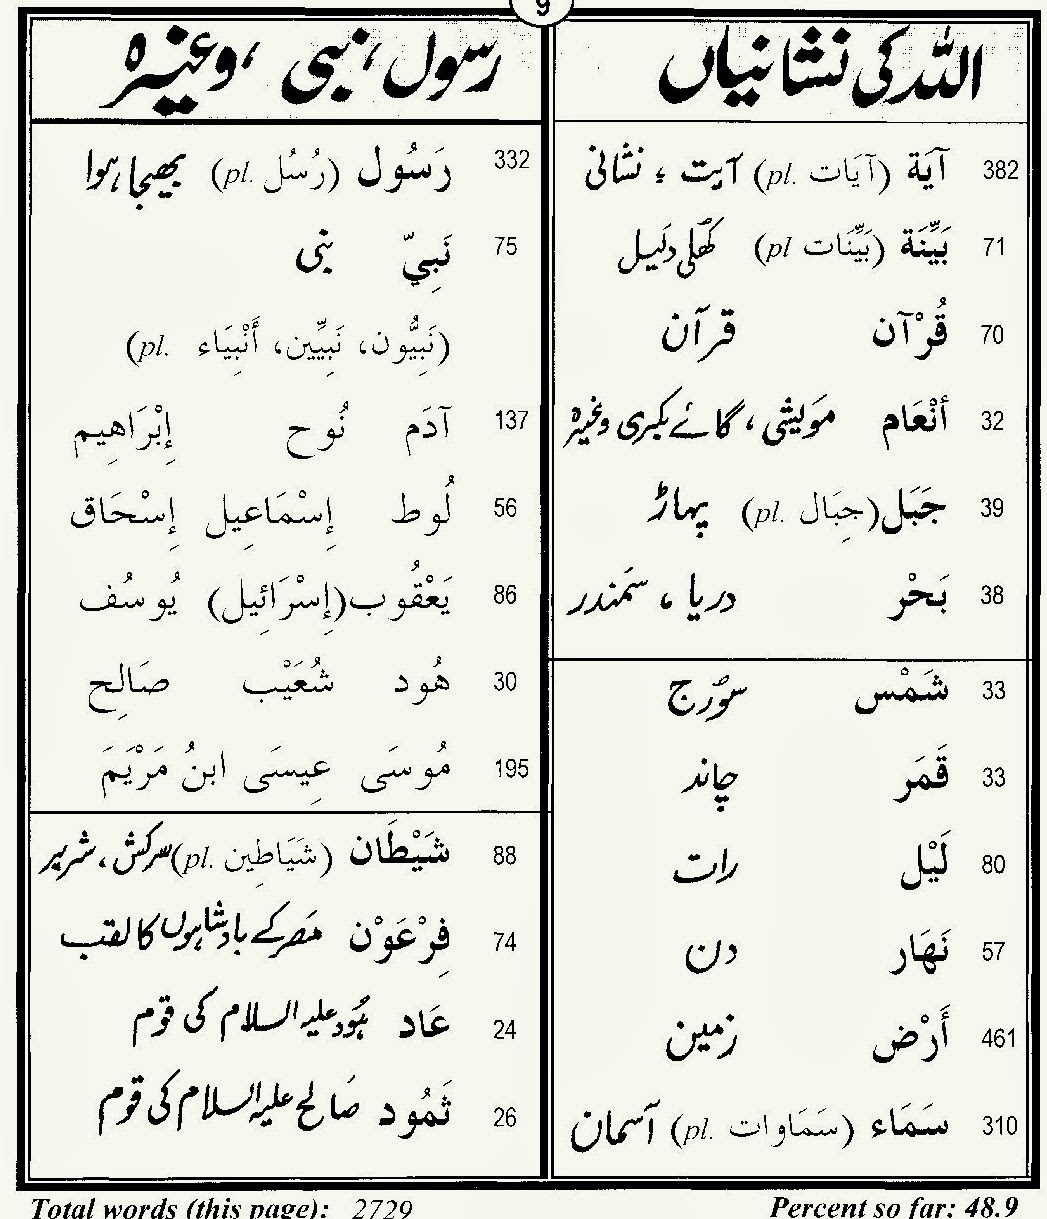 9
اللہ کی نشانیاں
382 آيَة (آيَات pl.) آیت ؛ نشانی
71 بَيِّنَة (بَيِّنَات pl) کھلی دلیل
70 قُرْآن قرآن
32 أَنْعَام مویشی، گائے بکری وغیرہ
39 جَبَل (جِبَال pl.) پہاڑ
38 بَحْر دریا، سمندر
33 شَمْس سورج
33 قَمَر چاند
80 لَيْل رات
57 نَهَار دن
461 أَرْض زمین
310 سَمَاء (سَمَاوات pl.) آسمان
رسول، نبی، وغیرہ
332 رَسُول (رُسُل pl.) بھیجا ہوا
75 نَبِيّ نبی
(نَبِيُّون، نَبِيِّين، أَنْبِيَاء pl.)
137 آدَم نُوح إِبْرَاهِيم
56 لُوط إِسْمَاعِيل إِسْحَاق
86 يَعْقُوب (إِسْرَائِيل) يُوسُف
30 هُود شُعَيْب صَالِح
195 مُوسَى عِيسَى ابنُ مَرْيَمَ
88 شَيْطَان (شَيَاطِين pl.) سرکش، شریر
74 فِرْعَوْن مصر کے بادشاہوں کا لقب
24 عَاد ہُود علیہ السلام کی قوم
26 ثَمُود صَالح علیہ السلام کی قوم
Total words (this page): 2729
Percent so far: 48.9